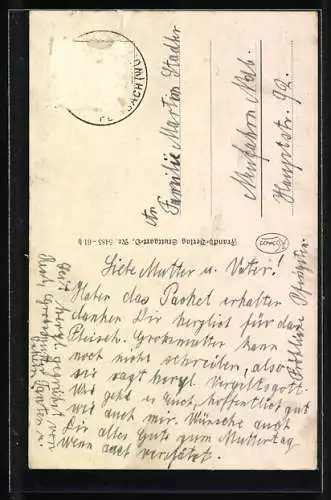 An
Familie Martin Stadler
Neufahrn Ndb.
Hauptstr. 92.
Verlag Stuttgart-O. Nr. 5455 - 61 b
Liebe Mutter u. Vater!
Haben das Packet erhalten
danken Dir herzlich für das
Fleisch. Grosmutter kann
noch nicht schreiben, also
sie sagt herzl. Vergeltsgott.
Wie geht es Euch, hoffentlich gut
wie auch mir. Wünsche auch
Dir alles Gute zum Muttertag
wenn auch verspätet.
Fröhliche Pfingsten
Seit herzl. gegrüßt von
Grosmutter